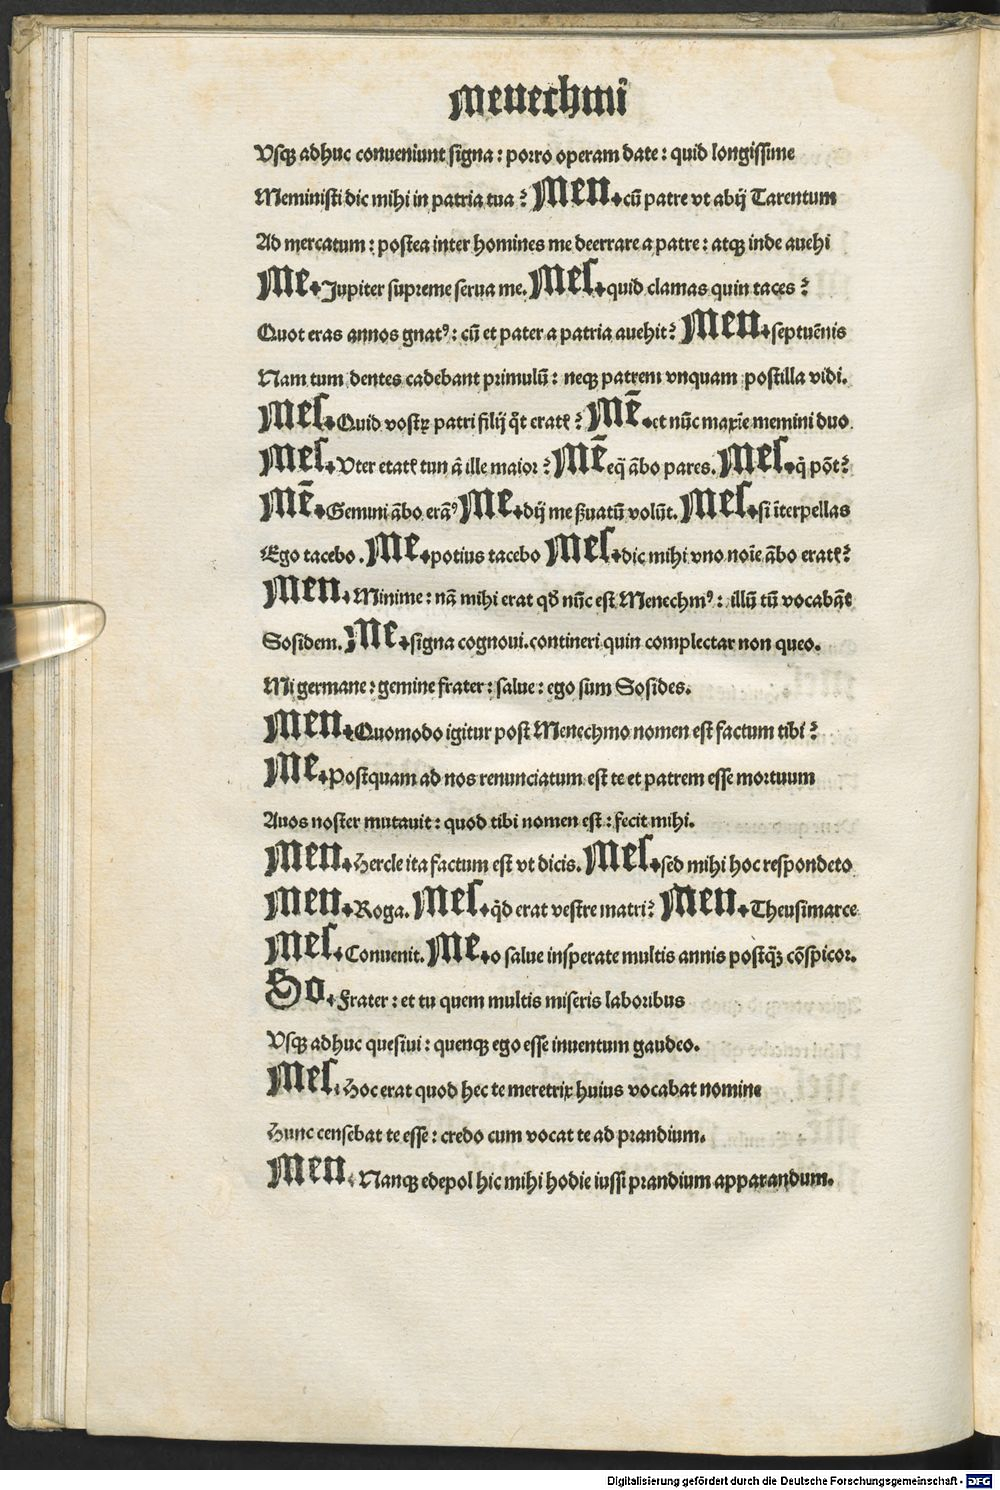 Menechmi
Vsqꝫ adhuc conueniunt signa : porro operam date : quid longissime
Meministi dic mihi in patria tua ? Men. cū patre vt abij Tarentum
Ad mercatum : postea inter homines me deerrare a patre : atqꝫ inde auehi
Me. Jupiter supreme serua me. Mes. quid clamas quin taces ?
Quot eras annos gnatꝰ : cū et pater a patria auehit ? Men. septuēnis
Nam tum dentes cadebant primulū : neqꝫ patrem vnquam postilla vidi.
Mes. Quid vostrꝝ patri filij q̄t eratꝭ ? Mē. et nūc maxīe memini duo
Mes. Vter etatꝭ tun ā ille maior ? Mē eq̄ ābo pares. Mes. q̄ pōt ?
Mē. Gemini ābo erāꝰ Me. dij me ẞuatū volūt. Mes. si īterpellas
Ego tacebo . Me. potius tacebo Mes. dic mihi vno noīe ābo eratꝭ ?
Men. Minime : nā mihi erat qđ nūc est Menechmꝰ : illū tū vocabāt
Sosidem. Me. signa cognoui. contineri quin complectar non queo.
Mi germane : gemine frater : salue : ego sum Sosides.
Men. Quomodo igitur post Menechmo nomen est factum tibi ?
Me. Postquam ad nos renunciatum est te et patrem esse mortuum
Auos noster mutauit : quod tibi nomen est : fecit mihi.
Men. Hercle ita factum est vt dicis. Mes. sed mihi hoc respondeto
Men. Roga. Mes. q̄d erat vestre matri ? Men. Theusimarce
Mes. Conuenit. Me. o salue insperate multis annis postq̄ꝫ cōspicor.
So. Frater : et tu quem multis miseris laboribus
Vsqꝫ adhuc quesiui : quenqꝫ ego esse inuentum gaudeo.
Mes. Hoc erat quod hec te meretrix huius vocabat nomine
Hunc censebat te esse : credo cum vocat te ad prandium.
Men. Nanqꝫ edepol hic mihi hodie iussi prandium apparandum.
Digitalisierung gefördert durch die Deutsche Forschungsgemeinschaft - DFG